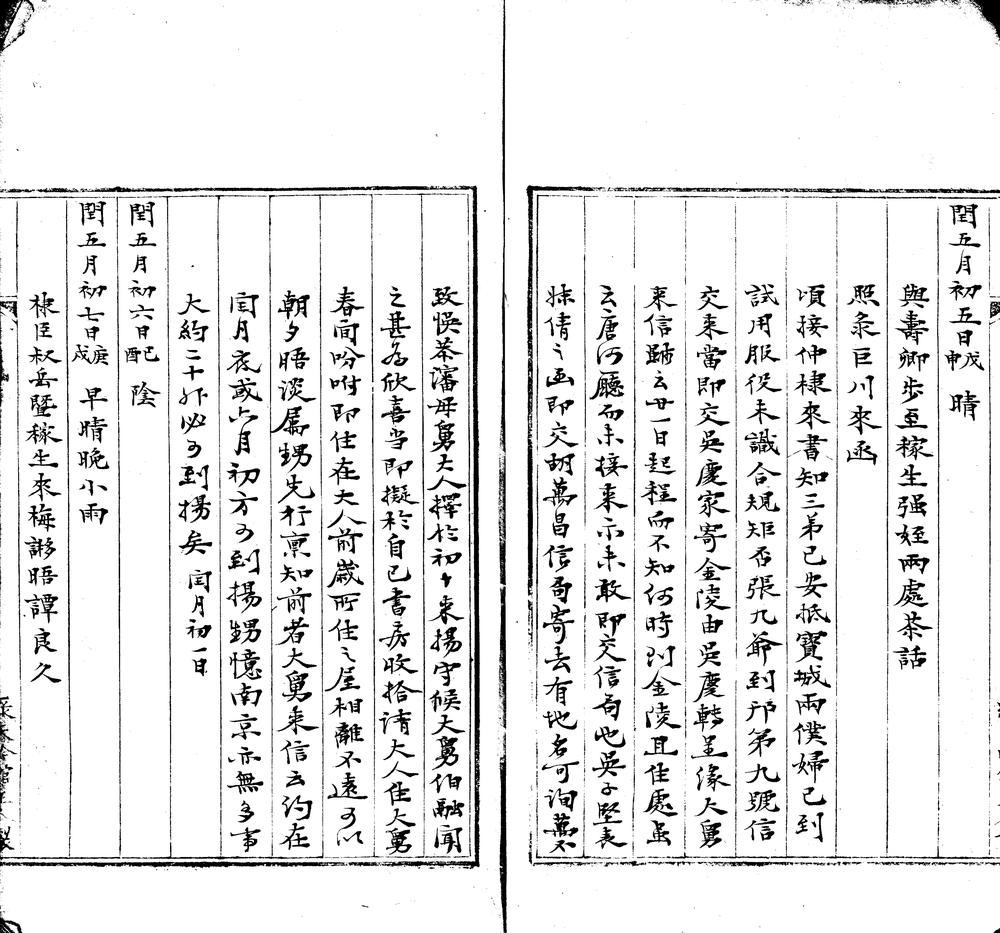 閏五月初五日戊申 晴
與壽卿步至稼生强姪兩處茶話
照錄巨川來函
頃接仲棣來書知三弟已安抵寶城兩僕婦已到
試用服役未識合規矩否張九爺到邗第九號信
交來當即交吳慶家寄金陵由吳慶轉呈緣大舅
來信跡云廿一日起程而不知何時到金陵且住處虽
云唐河廳而未接來示未敢即交信局也吳子堅表
妹倩之函即交胡萬昌信局寄去有地名可詢萬不
致悞茶瀋母舅大人擇於初十來揚守候大舅伯融聞
之甚為欣喜當即擬於自己書房收拾請大人住大舅
春間吩咐即住在大人前歲所住之屋相離不遠可以
朝夕晤談屬甥先行稟知前者大舅來信云約在
閏月底或六月初方可到揚甥憶南京亦無多事
大約二十外必可到揚矣 閏月初一日
閏五月初六日己酉 陰
閏五月初七日庚戌 早晴晚小雨
棣臣叔岳暨稼生來梅謝晤譚良久